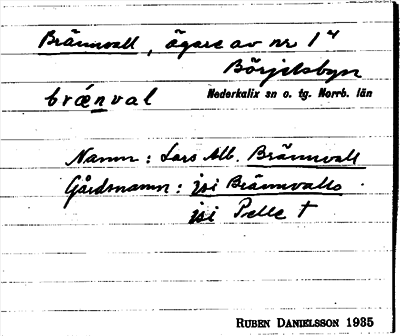 Brännvall, ägare av nr 1⁴
Börjelsbyn
brǽnval Nederkalix sn o. tg. Norrb. län
Namn: Lars Alb. Brännvall
Gårdsnamn: jsi Brännvalls
jsi Pelle †
RUBEN DANIELSSON 1935